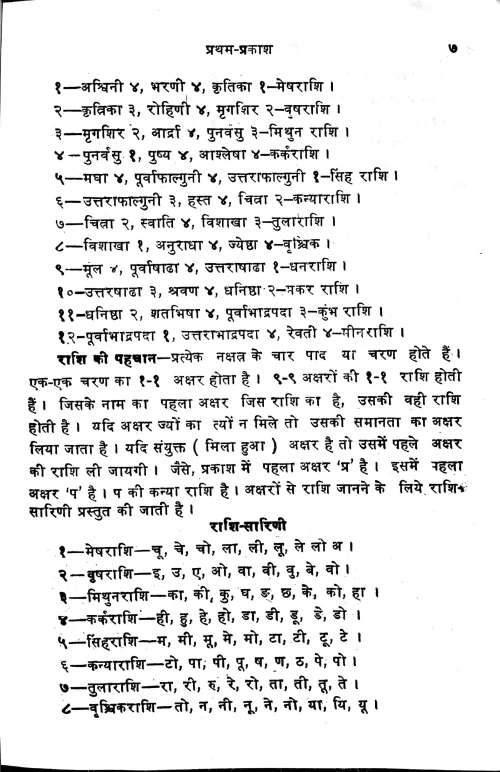 प्रथम-प्रकाश ७
१—अश्विनी ४, भरणी ४, कृतिका १–मेषराशि ।
२—कृत्रिका ३, रोहिणी ४, मृगशिर २–वृषराशि ।
३—मृगशिर २, आर्द्रा ४, पुनर्वसु ३–मिथुन राशि ।
४—पुनर्वसु १, पुष्य ४, आश्लेषा ४–कर्कराशि ।
५—मघा ४, पूर्वाफाल्गुनी ४, उत्तराफाल्गुनी १–सिंह राशि ।
६—उत्तराफाल्गुनी ३, हस्त ४, चित्रा २–कन्याराशि ।
७—चित्रा २, स्वाति ४, विशाखा ३–तुलाराशि ।
८—विशाखा १, अनुराधा ४, ज्येष्ठा ४–वृश्चिक ।
९—मूल ४, पूर्वाषाढा ४, उत्तराषाढा १–धनराशि ।
१०—उत्तरषाढा ३, श्रवण ४, धनिष्ठा २–मकर राशि ।
११—धनिष्ठा २, शतभिषा ४, पूर्वाभाद्रपदा ३–कुंभ राशि ।
१२–पूर्वाभाद्रपदा १, उत्तराभाद्रपदा ४, रेवती ४–मीनराशि ।
राशि की पहचान—प्रत्येक नक्षत्र के चार पाद या चरण होते हैं ।
एक-एक चरण का १-१ अक्षर होता है । ९-९ अक्षरों की १-१ राशि होती
हैं । जिसके नाम का पहला अक्षर जिस राशि का है, उसकी वही राशि
होती है । यदि अक्षर ज्यों का त्यों न मिले तो उसकी समानता का अक्षर
लिया जाता है । यदि संयुक्त ( मिला हुआ ) अक्षर है तो उसमें पहले अक्षर
की राशि ली जायगी । जैसे, प्रकाश में पहला अक्षर 'प्र' है । इसमें पहला
अक्षर 'प' है । प की कन्या राशि है । अक्षरों से राशि जानने के लिये राशि-
सारिणी प्रस्तुत की जाती है ।
राशि-सारिणी
१—मेषराशि—चू, चे, चो, ला, ली, लू, ले लो अ ।
२—वृषराशि—इ, उ, ए, ओ, वा, वी, वु, वे, वो ।
३—मिथुनराशि—का, की, कु, घ, ङ, छ, के, को, हा ।
४—कर्कराशि—ही, हु, हे, हो, डा, डी, डू, डे, डो ।
५—सिंहराशि—म, मी, मू, मे, मो, टा, टी, टू, टे ।
६—कन्याराशि—टो, पा, पी, पू, ष, ण, ठ, पे, पो ।
७—तुलाराशि—रा, री, रु, रे, रो, ता, ती, तू, ते ।
८—वृश्चिकराशि—तो, न, नी, नू, ने, नो, या, यि, यू ।